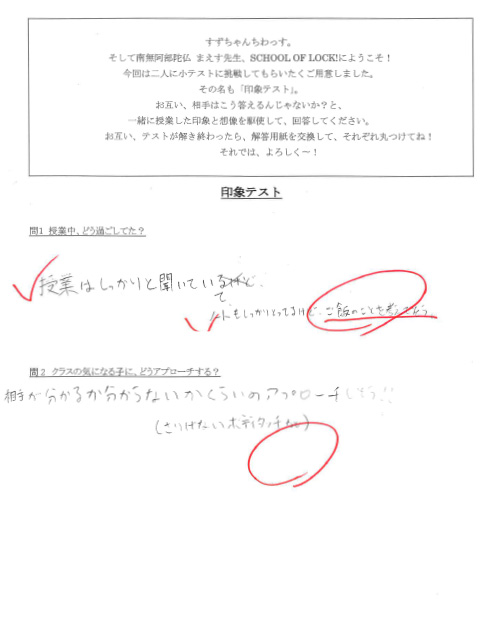 すずちゃんちわっす。
そして南無阿部陀仏 まえす先生、SCHOOL OF LOCK!にようこそ！
今回は二人に小テストに挑戦してもらいたくご用意しました。
その名も「印象テスト」。
お互い、相手はこう答えるんじゃないか？と、
一緒に授業した印象と想像を駆使して、回答してください。
お互い、テストが解き終わったら、解答用紙を交換して、それぞれ丸つけてね！
それでは、よろしく～！
印象テスト
問1 授業中、どう過ごしてた？
授業はしっかりと聞いている
て、
ノートもしっかりとってるけど、ご飯のことを考えてそう
問2 クラスの気になる子に、どうアプローチする？
相手が分かるか分からないかくらいのアプローチしそう!!
(さりげないボディタッチなど)